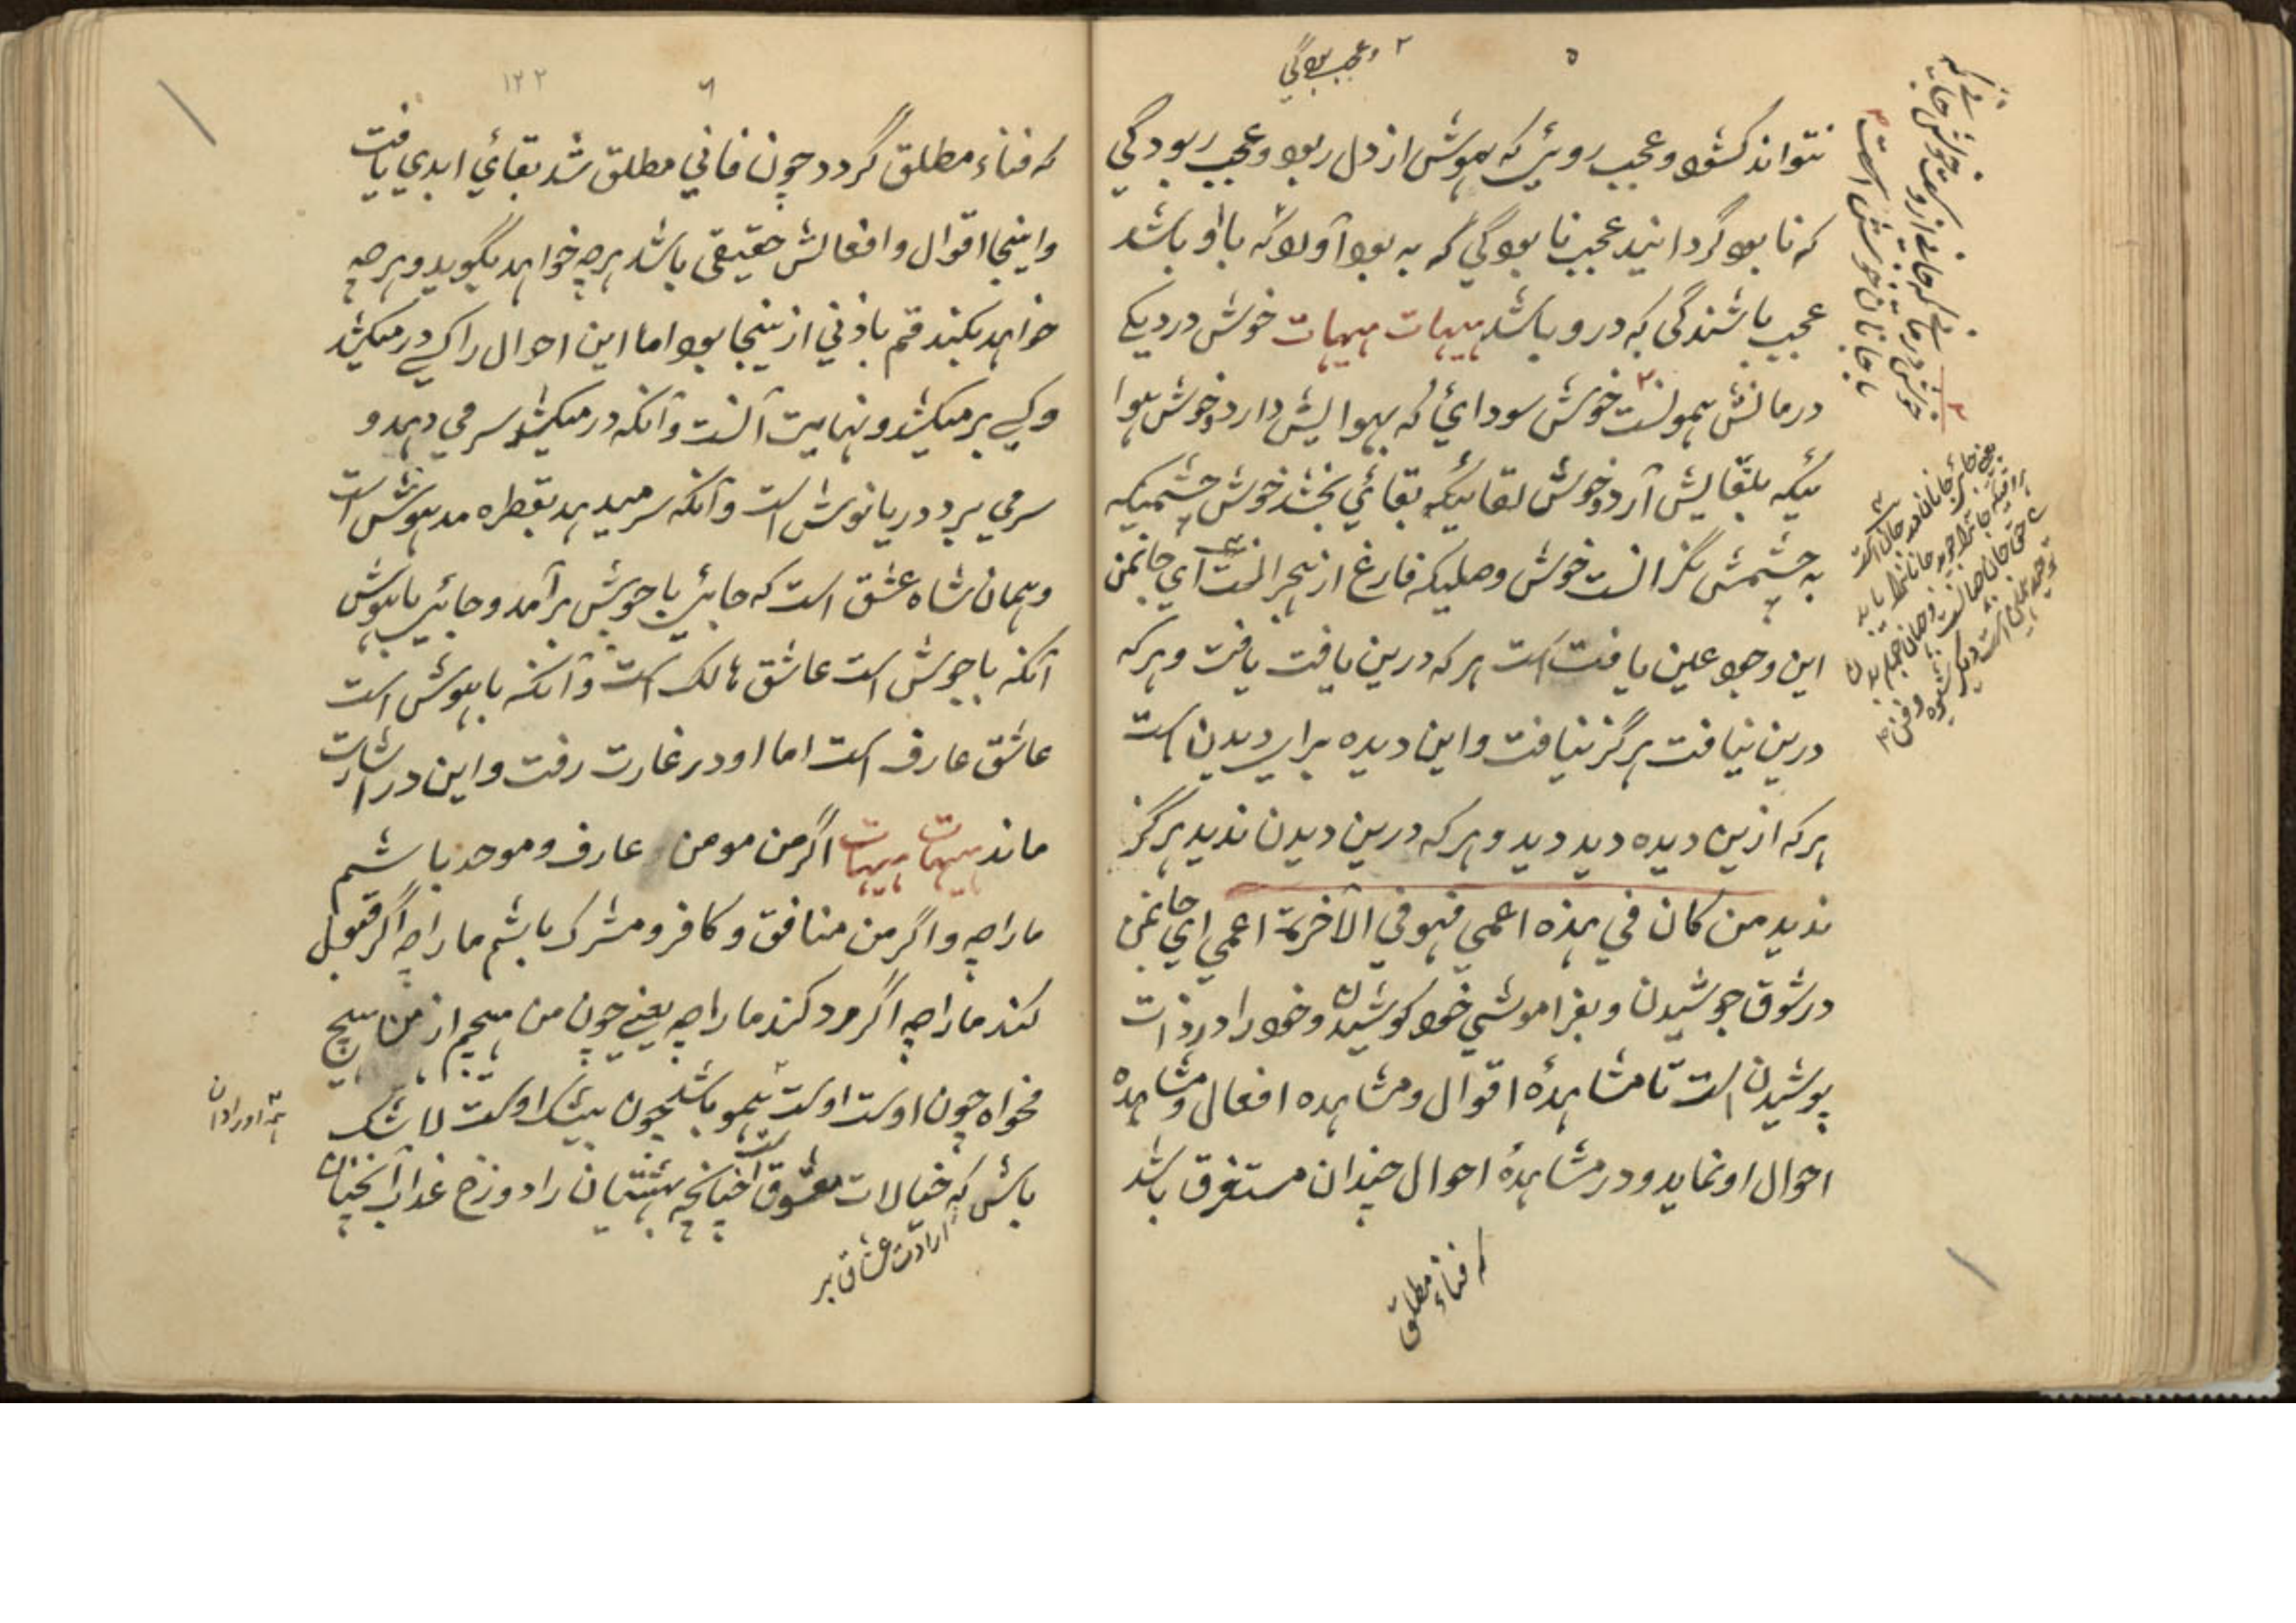 ۵
۲ وعجب بودگی
نتواند کشود وعجب روئی که هوش از دل ربود وعجب ربودگی
که نابود گردانید عجب نابودگی که به بود آورد که با او باشد
عجب باشندگی که درو باشد هیهات هیهات خوش دردیکه
درمانش همونست خوش سودائی که بهوایش دارد وخوش هوا
ئیکه بلقایش آرد وخوش لقائیکه بقائی بخشد خوش چشمیکه
به چشمش نگرانست خوش وصلیکه فارغ از هجرانست ای جانمن
این وجود عین یافت است هرکه درین یافت یافت وهرکه
درین نیافت هرگز نیافت واین دیده برای دیدن است
هرکه ازین دیده دید دید وهرکه درین دیدن ندید هرگز
ندید من کان في هذه اعمي فهو في الآخرة اعمي ای جانمن
درشوق جوشیدن وبفراموشي خود کوشیدن وخود را در ذات
پوشیدن است تا مشاهدهٔ اقوال ومشاهده افعال ومشاهده
احوال او نماید ودر مشاهدهٔ احوال چندان مستغرق باشد
که فناء مطلق
۶
۱۲۲
که فناء مطلق گردد چون فاني مطلق شد بقائي ابدي یافت
واینجا اقوال وافعالش حقیقی باشد هرچه خواهد بگوید وهرچه
خواهد بکند قم باذني ازینجا بود اما این احوال را کسے درمیکشد
وکسے برمیکشد ونهایت آنست وآنکه درمیکشد سر مي دهد و
سر مي برد دریا نوش است وآنکه سر میدهد بقطره مدهوش است
وهمان شاه عشق است که جائے باجوش برآمد وجائے باهوش
آنکه باجوش است عاشق هالک است وآنکه باهوش است
عاشق عارف است اما او در غارت رفت واین در اشارت
ماند هیهات هیهات اگر من مومن عارف وموحد باشم
مارا چه واگر من منافق وکافر ومشرک باشم مارا چه اگر قبول
کند مارا چه اگر رد کند مارا چه یعنے چون من هیچم از من هیچ
مخواه چون اوست اوست همو باشد چون بیشک اوست لاشک
باش که خیالات معشوق است چنانچه بهشتیان را دوزخ عذاب آنچنان
ارادت عشاق بر